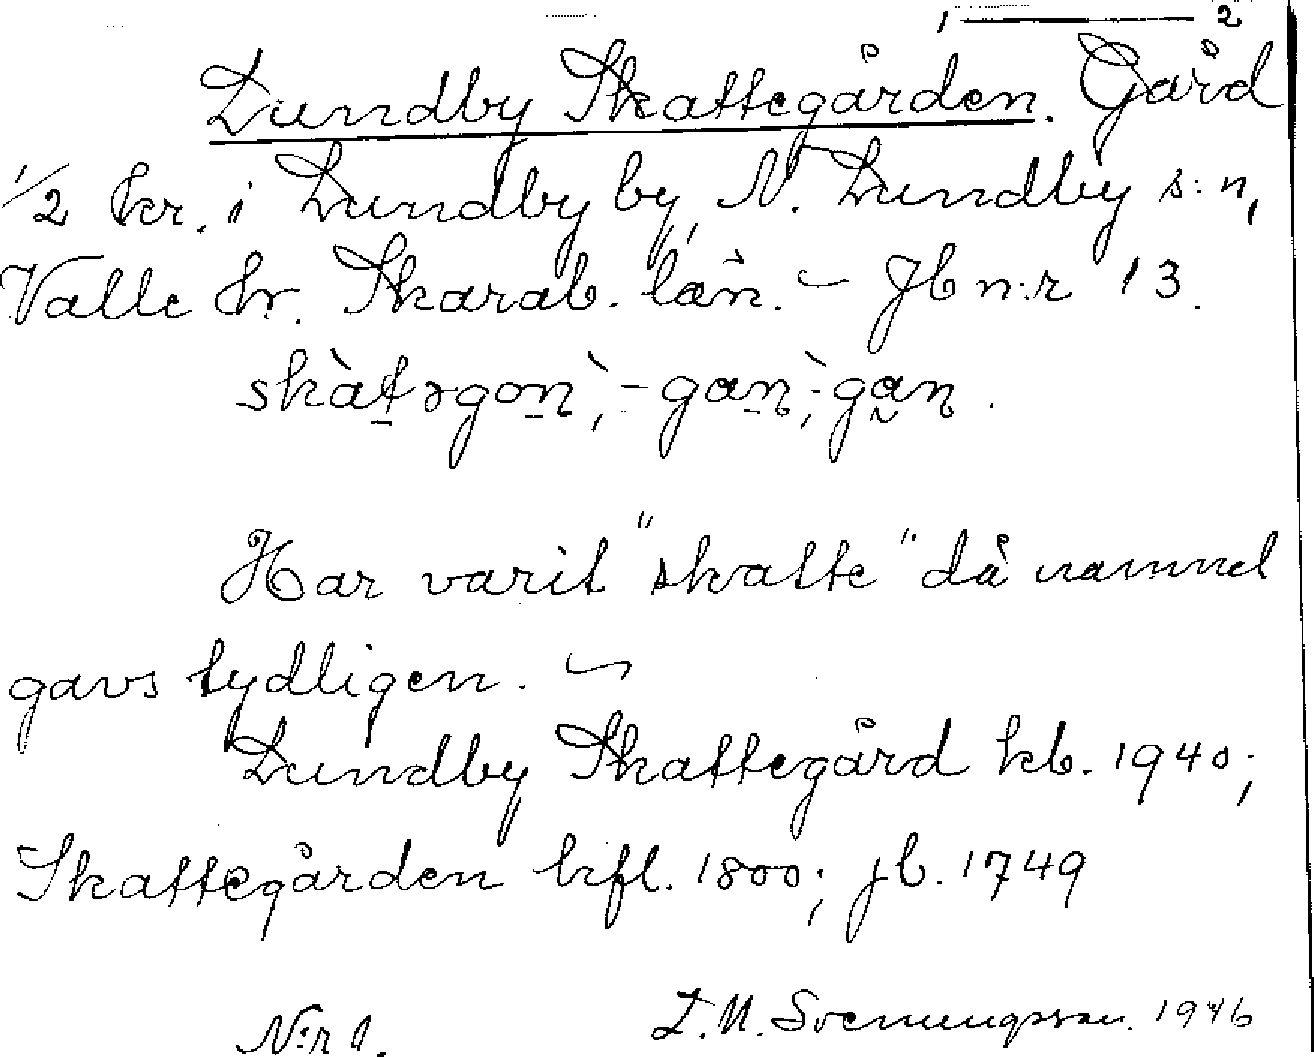 1 — 2
Lundby Skattegården. Gård
1/2 kr. i Lundby by, N. Lundby s:n,
Valle hr. Skarab. län. – Jb n:r 13.
skàtəgon, -gan, -gan.
Har varit "skatte" då namnet
gavs tydligen. –
Lundby Skattegård kb. 1940;
Skattegården hfl. 1800; jb. 1749
N:r 1. L. M. Svenungsson. 1946